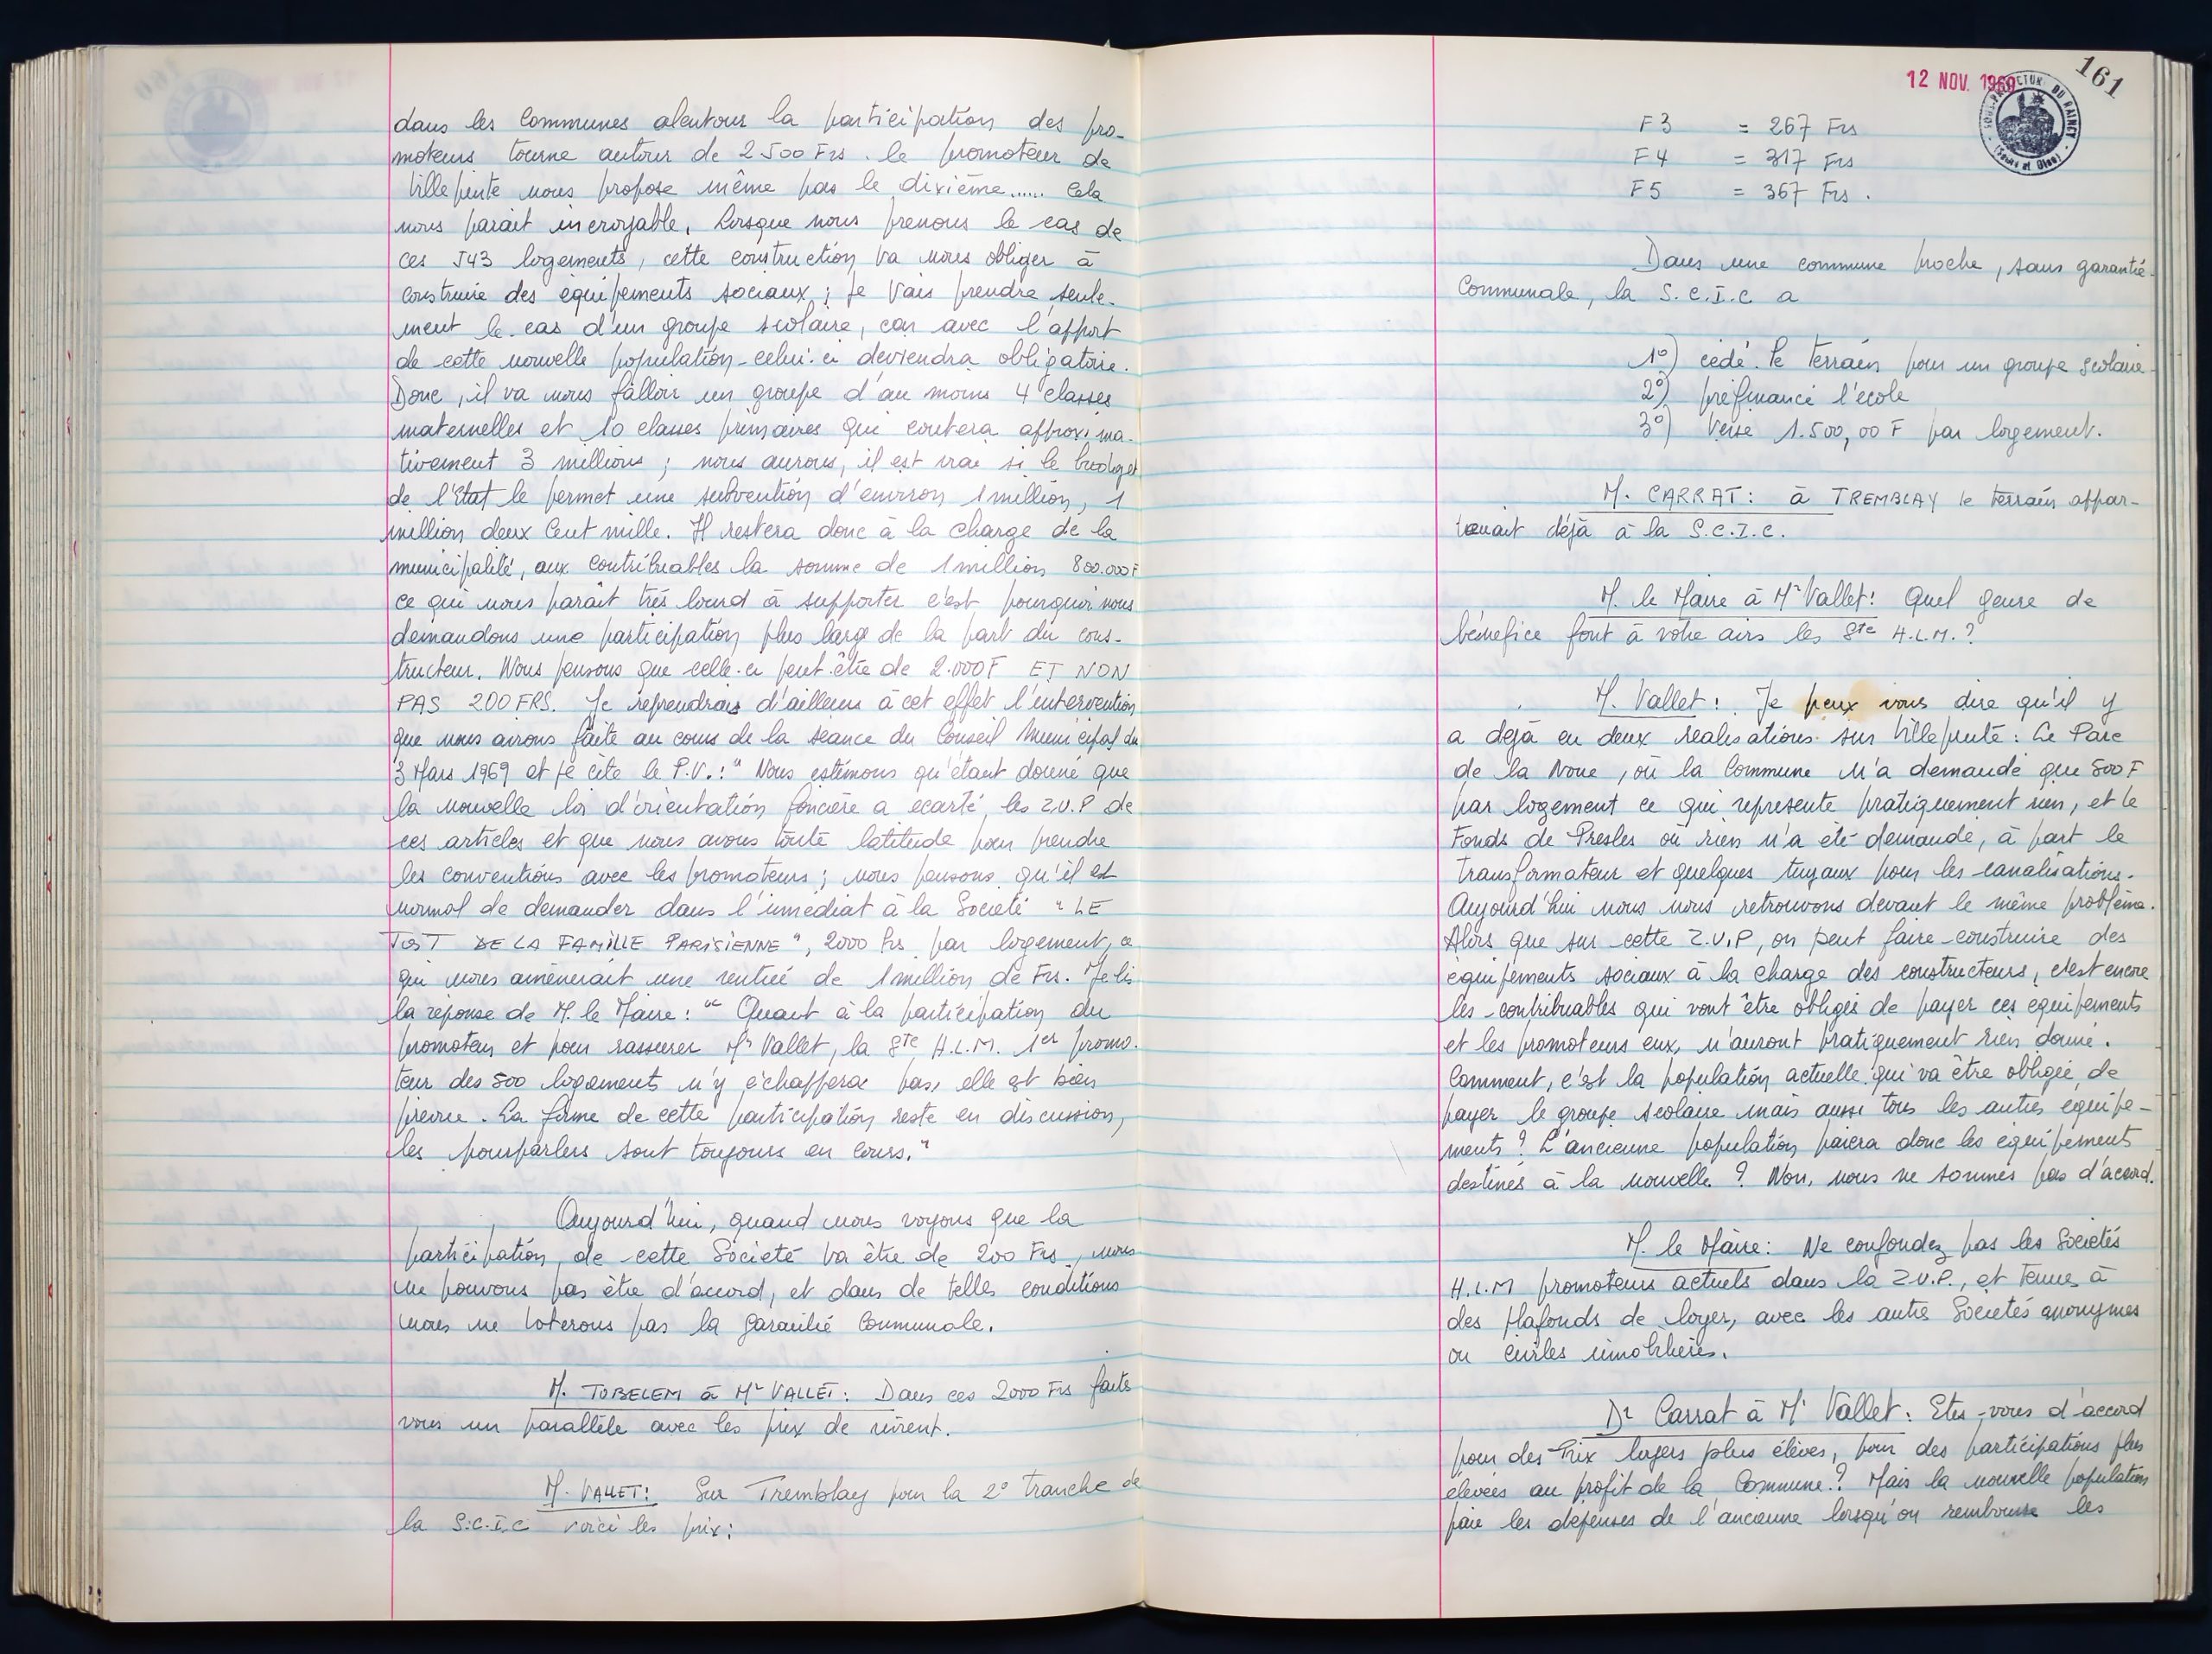 dans les Communes alentour la participation des pro-
moteurs tourne autour de 2500 Frs. le promoteur de
Villepinte nous propose même pas le dixième...... Cela
nous parait incroyable, lorsque nous prenons le cas de
ces 543 logements, cette construction va nous obliger à
construire des équipements sociaux; je vais prendre seule-
ment le cas d'un groupe scolaire, car avec l'apport
de cette nouvelle population-celui-ci deviendra obligatoire.
Donc, il va nous falloir un groupe d'au moins 4 classes
maternelles et 10 classes primaires qui coutera approxima-
tivement 3 millions; nous aurons, il est vrai si le budget
de l'Etat le permet une subvention d'environ 1 million, 1
million deux cent mille. Il restera donc à la charge de la
municipalité, aux contribuables la somme de 1 million 800.000F
ce qui nous paraît très lourd à supporter c'est pourquoi nous
demandons une participation plus large de la part du cons-
tructeur. Nous pensons que celle-ci peut-être de 2.000F ET NON
PAS 200 FRS. Je reprendrais d'ailleurs à cet effet l'intervention
que nous avions faite au cours de la séance du Conseil Municipal du
3 Mars 1969 et je cite le P.V.: " Nous estimons qu'étant donné que
la nouvelle loi d'orientation foncière a ecarté, les Z.U.P de
ces articles et que nous avons toute latitude pour prendre
les conventions avec les promoteurs; nous pensons qu'il est
normal de demander dans l'imediat à la Societé " LE
TOIT DE LA FAMILLE PARISIENNE ", 2000 Frs par logement, ce
qui nous amènerait une rentrée de 1 million de Frs. Je lis
la réponse de M. le Maire: " Quant à la participation du
promoteur et pour rassurer Mr Vallet, la Sté H.L.M. 1er promo-
teur des 500 logements n'y échappera pas, elle est bien
prévue. La forme de cette participation reste en discussion,
les pourparlers sont toujours en cours."
Aujourd'hui, quand nous voyons que la
participation de cette Société va être de 200 Frs, nous
ne pouvons pas être d'accord, et dans de telles conditions
nous ne voterons pas la garantie Communale.
M. TOBELEM à Mr VALLET: Dans ces 2000 Frs faites
vous un parallèle avec les prix de revient.
M. VALLET: Sur Tremblay pour la 2° tranche de
la S.C.I.C voici les prix:
12 NOV. 1969
161
SOUS-PREFECTURE DU RAINCY
(Seine et Oise)
F3 = 267 Frs
F4 = 317 Frs
F5 = 367 Frs.
Dans une commune proche, sans garantie
Communale, la S.C.I.C a
1°) cédé le terrain pour un groupe scolaire
2°) préfinancé l'école
3°) Versé 1.500,00 F par logement.
M. CARRAT: à TREMBLAY le terrain appar-
tenait déjà à la S.C.I.C.
M. le Maire à Mr Vallet: Quel genre de
bénéfice font à votre avis les Sté H.L.M.?
M. Vallet: Je peux vous dire qu'il y
a déjà eu deux réalisations sur Villepinte: Le Parc
de la Noue, où la Commune n'a demandé que 500 F
par logement ce qui représente pratiquement rien, et le
Fonds de Presles où rien n'a été demandé, à part le
transformateur et quelques tuyaux pour les canalisations.
Aujourd'hui nous nous retrouvons devant le même problème.
Alors que sur cette Z.U.P, on peut faire construire des
équipements sociaux à la charge des constructeurs, c'est encore
les contribuables qui vont être obligés de payer ces equipements
et les promoteurs eux, n'auront pratiquement rien donné.
Comment, c'est la population actuelle qui va être obligée de
payer le groupe scolaire mais aussi tous les autres équipe-
ments? L'ancienne population paiera donc les équipements
destinés à la nouvelle? Non, nous ne sommes pas d'accord.
M. le Maire: Ne confondez pas les Sociétés
H.L.M promoteurs actuels dans la Z.U.P., et tenus à
des plafonds de loyer, avec les autres Sociétés anonymes
ou civiles immobilières.
Dr Carrat à Mr Vallet: Etes-vous d'accord
pour des Prix loyers plus élèvés, pour des participations plus
élevées au profit de la Commune? Mais la nouvelle population
paie les dépenses de l'ancienne lorsqu'on rembourse les